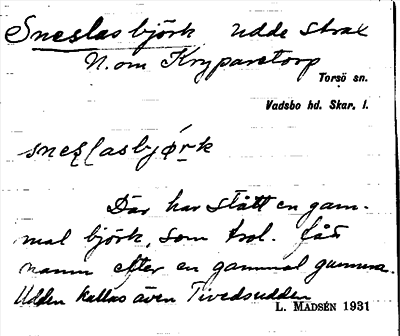 Sneslasbjörk udde strax
N. om Kryparetorp
Torsö sn.
Vadsbo hd. Skar. l.
snes̲lasbjǫ́rk
Där har stått en gam-
mal björk, som trol. fått
namn efter en gammal gumma.
Udden kallas även Tivedsudden
L. MADSÉN 1931